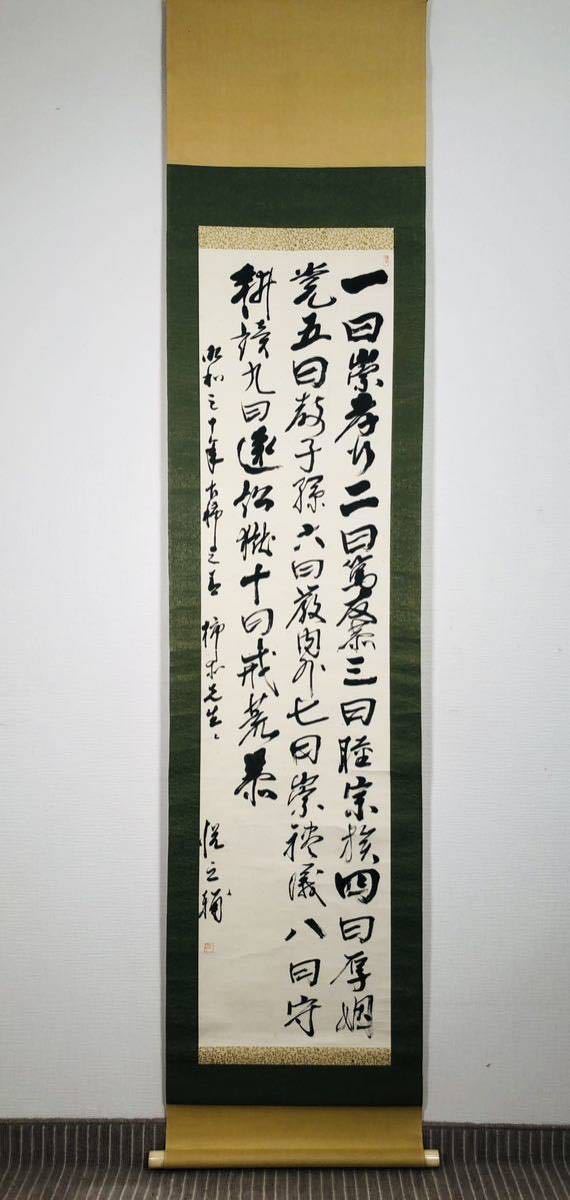 一曰崇孝行二曰篤友恭三曰睦宗族四曰厚姻
党五曰教子孫六曰嚴内外七曰崇禮儀八曰守
耕讀九曰遠訟獄十曰戒荒暴
昭和三十年 之春 先生
之輔